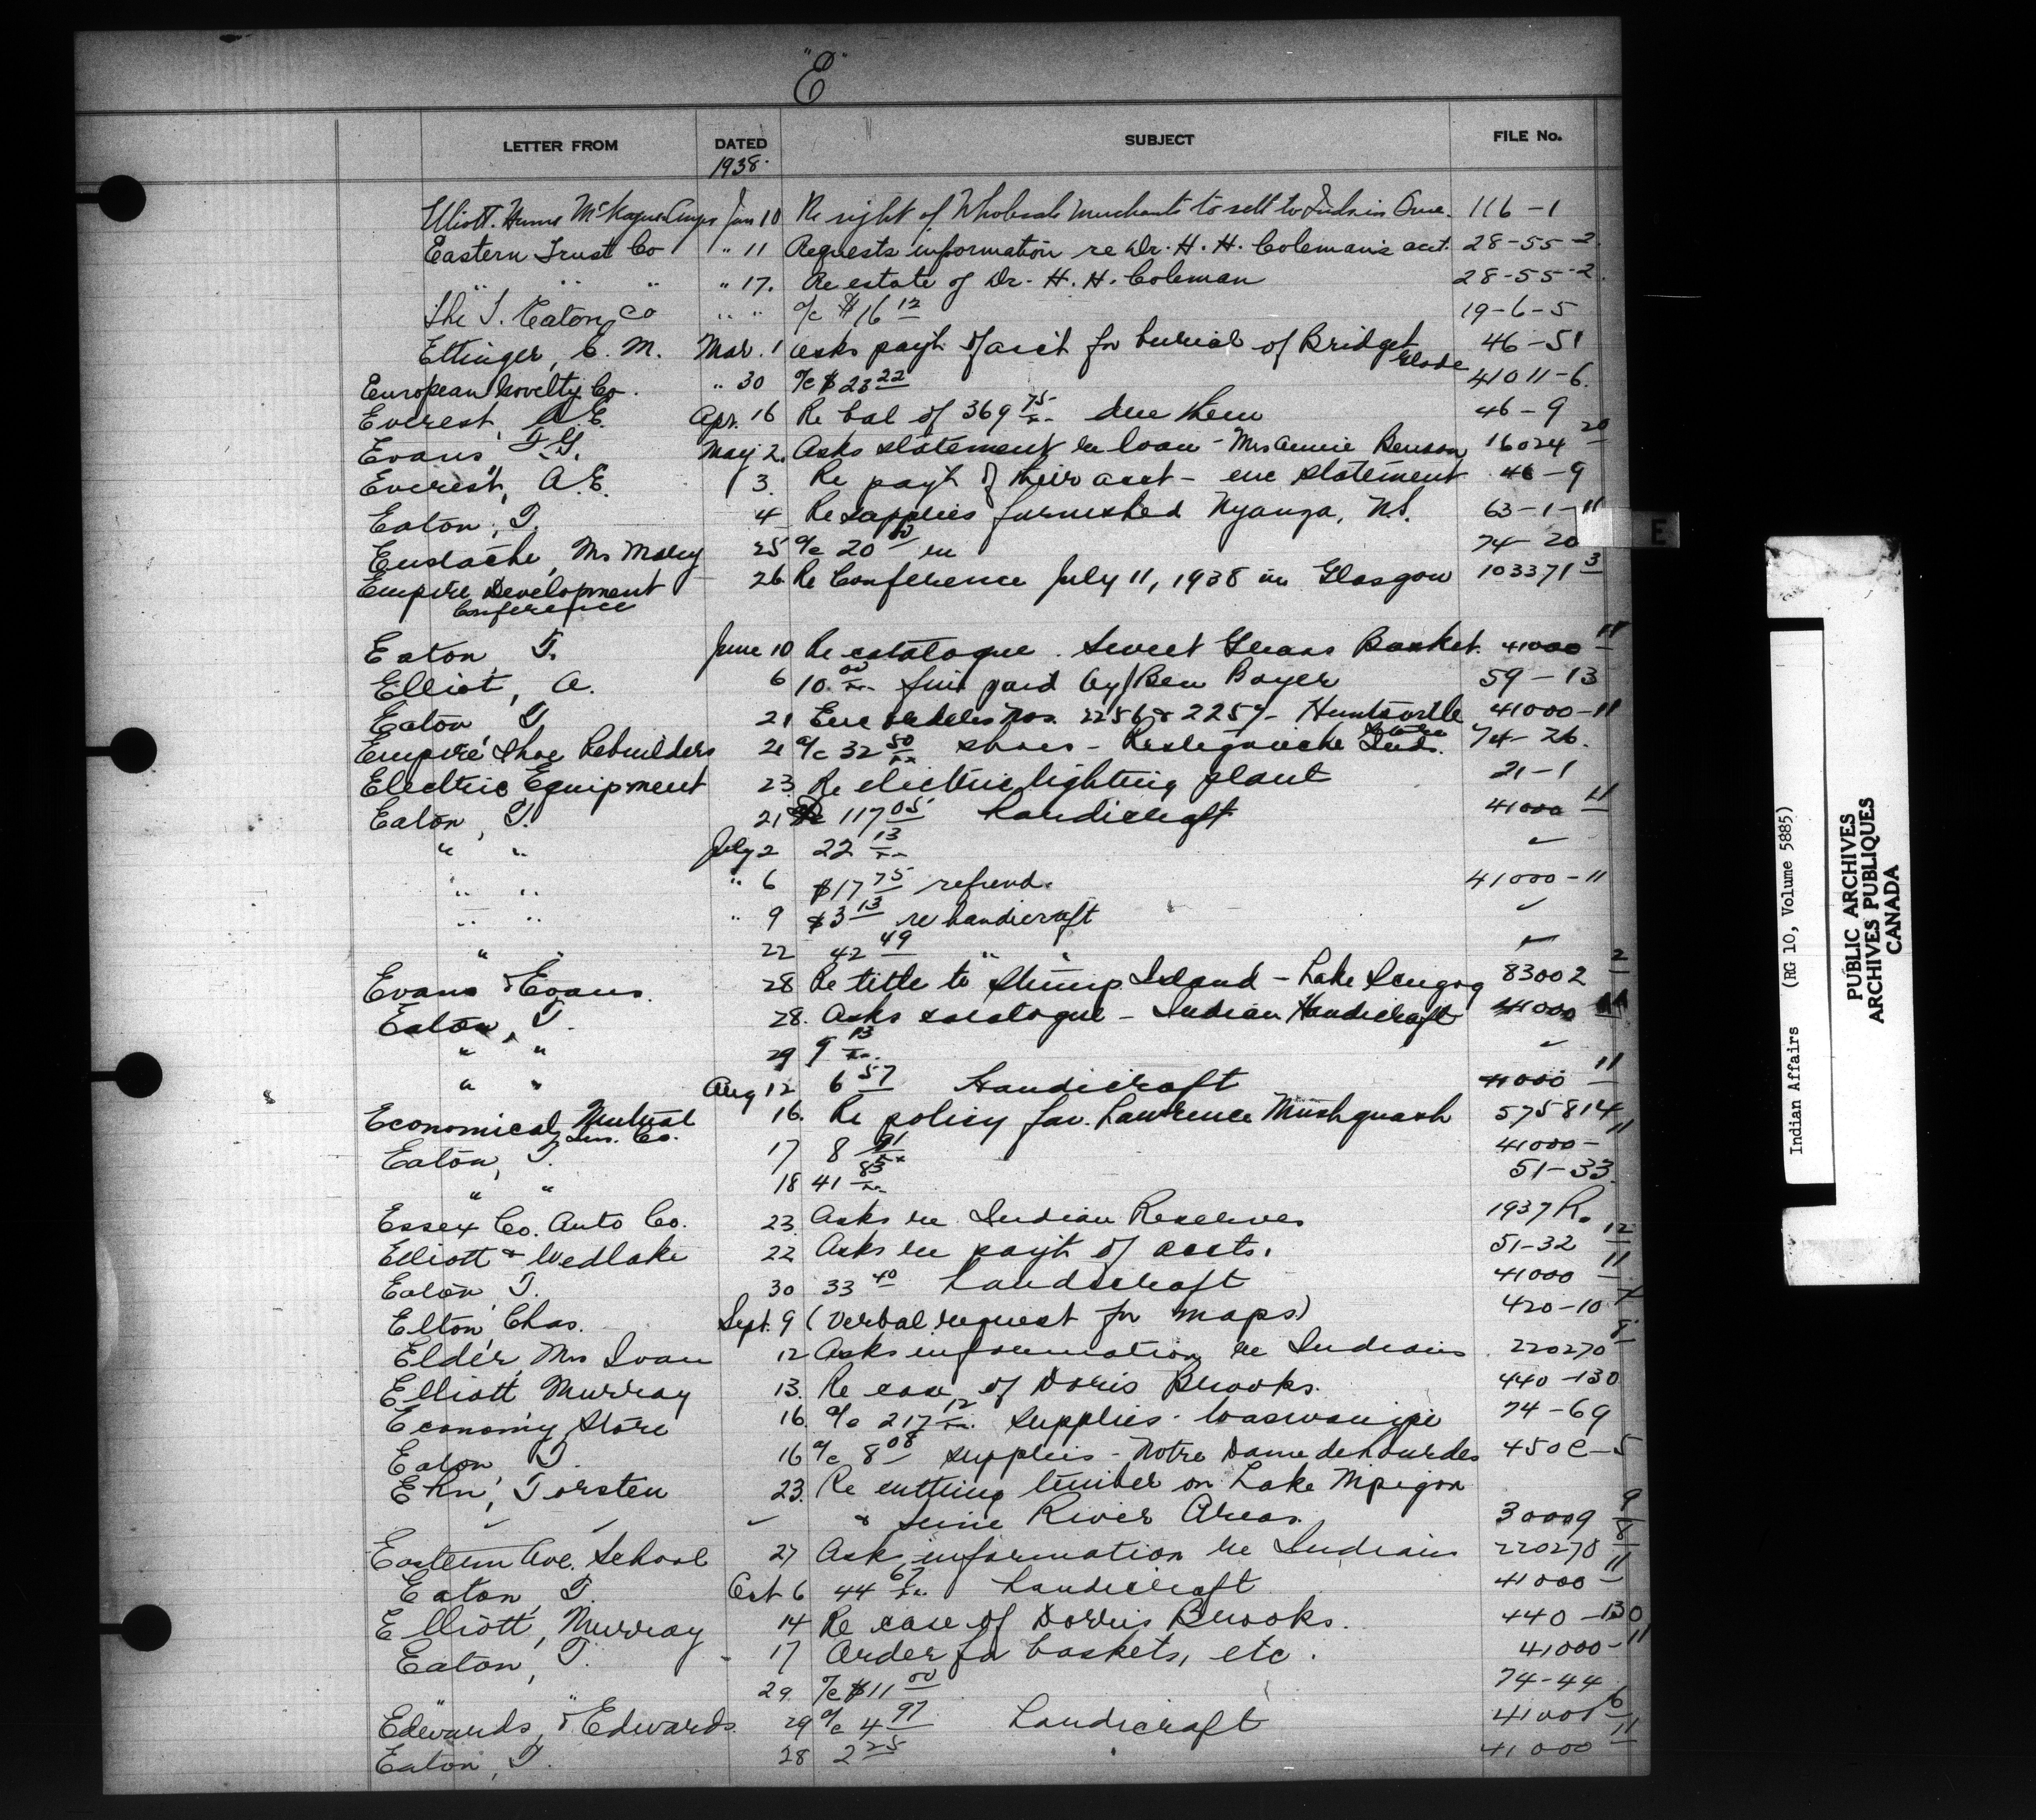 "E"
LETTER FROM DATED SUBJECT FILE No.
1938.
Elliott. Hume McKague Jan 10 Re right of Wholesale Merchants to sell to Indian 116-1
Eastern Trust Co " 11 Requests information re Dr. H. H. Coleman's acct. 28-55-2
" " " " 17. Re estate of Dr. H. H. Coleman 28-55-2.
The T. Eaton Co " " a/c $16 12 19-6-5
Ettinger, C. M. Mar. 1 asks payt of acct for burial of Bridget Glode 46-51
European Novelty Co. " 30 a/c $23 22 41011-6.
Everest, A.E. Apr. 16 Re bal of 369 75 due them 46-9
Evans, T.G. May 2. Asks statement re loan - Mrs Annie Benson 16024 20
Everest, A.E. 3. Re payt of their acct - enc statement 46-9
Eaton, T. 4 Re supplies furnished Nyanza, N.S. 63-1-11
Eustache, Mrs Mary 25 a/c 20 00 re 74-20
Empire Development 26 Re Conference July 11, 1938 in Glasgow 103371 3
Conference
Eaton, T. June 10 Re catalogue. Sweet Grass Basket. 41000 11
Elliot, A. 6 10. 00 fine paid by Ben Boyer 59-13
Eaton, T. 21 Enc orders nos. 2256 & 2257- Huntsville 41000-11
Empire Shoe Rebuilders 21 a/c 32 50 shoes - Restigouche Inds. 74-26.
Electric Equipment 23. Re electric lighting plant 21-1
Eaton, T. 21 117 05 handicraft 41000 11
" " July 2 22 13 ✓
" " " 6 $17 75 refund. 41000-11
" " " 9 $3 13 re handicraft ✓
" " 22 42 49 " " ✓
Evans & Evans. 28 Re title to Stump Island - Lake Scugog 83002 2
Eaton, T. 28. Asks catalogue - Indian Handicraft 41000
" " 29 9 13 ✓
" " Aug 12 6 57 Handicraft 41000 11
Economical Mutual 16. Re policy fav. Lawrence Mushquash 575814
Ins. Co.
Eaton, T. 17 8 91 41000-11
" " 18 41 83 51-33.
Essex Co. Auto Co. 23. Asks re Indian Reserves 1937 R.
Elliott & Wedlake 22 Asks re payt of accts. 51-32 12
Eaton, T. 30 33 40 handicraft 41000 11
Elton, Chas. Sept. 9 (Verbal request for maps) 420-10
Elder, Mrs Ivan 12 Asks information re Indians 220270 8
Elliott Murray 13. Re case of Doris Brooks. 440-130
Economy Store 16. a/c 217 12 supplies - Waswanipi 74-69
Eaton T. 16 a/c 8 08 supplies - Notre Dame de Lourdes 450C-5
Ehn, Torsten 23. Re cutting timber on Lake Nipigon
✓ ✓ ✓ & River Areas. 30009 9
Eastern Ave. School 27 Asks information re Indians 220270 8
Eaton, T. Oct 6 44 67 handicraft 41000 11
Elliott, Murray 14 Re case of Dorris Brooks. 440-130
Eaton, T. 17 Order for baskets, etc. 41000-11
" " 29. a/c $11 00 74-44
Edwards & Edwards. 29 a/c 4 97 handicraft 41001 6
Eaton, T. 28 2 25 41000 11
E
Indian Affairs (RG 10, Volume 5885)
PUBLIC ARCHIVES
ARCHIVES PUBLIQUES
CANADA